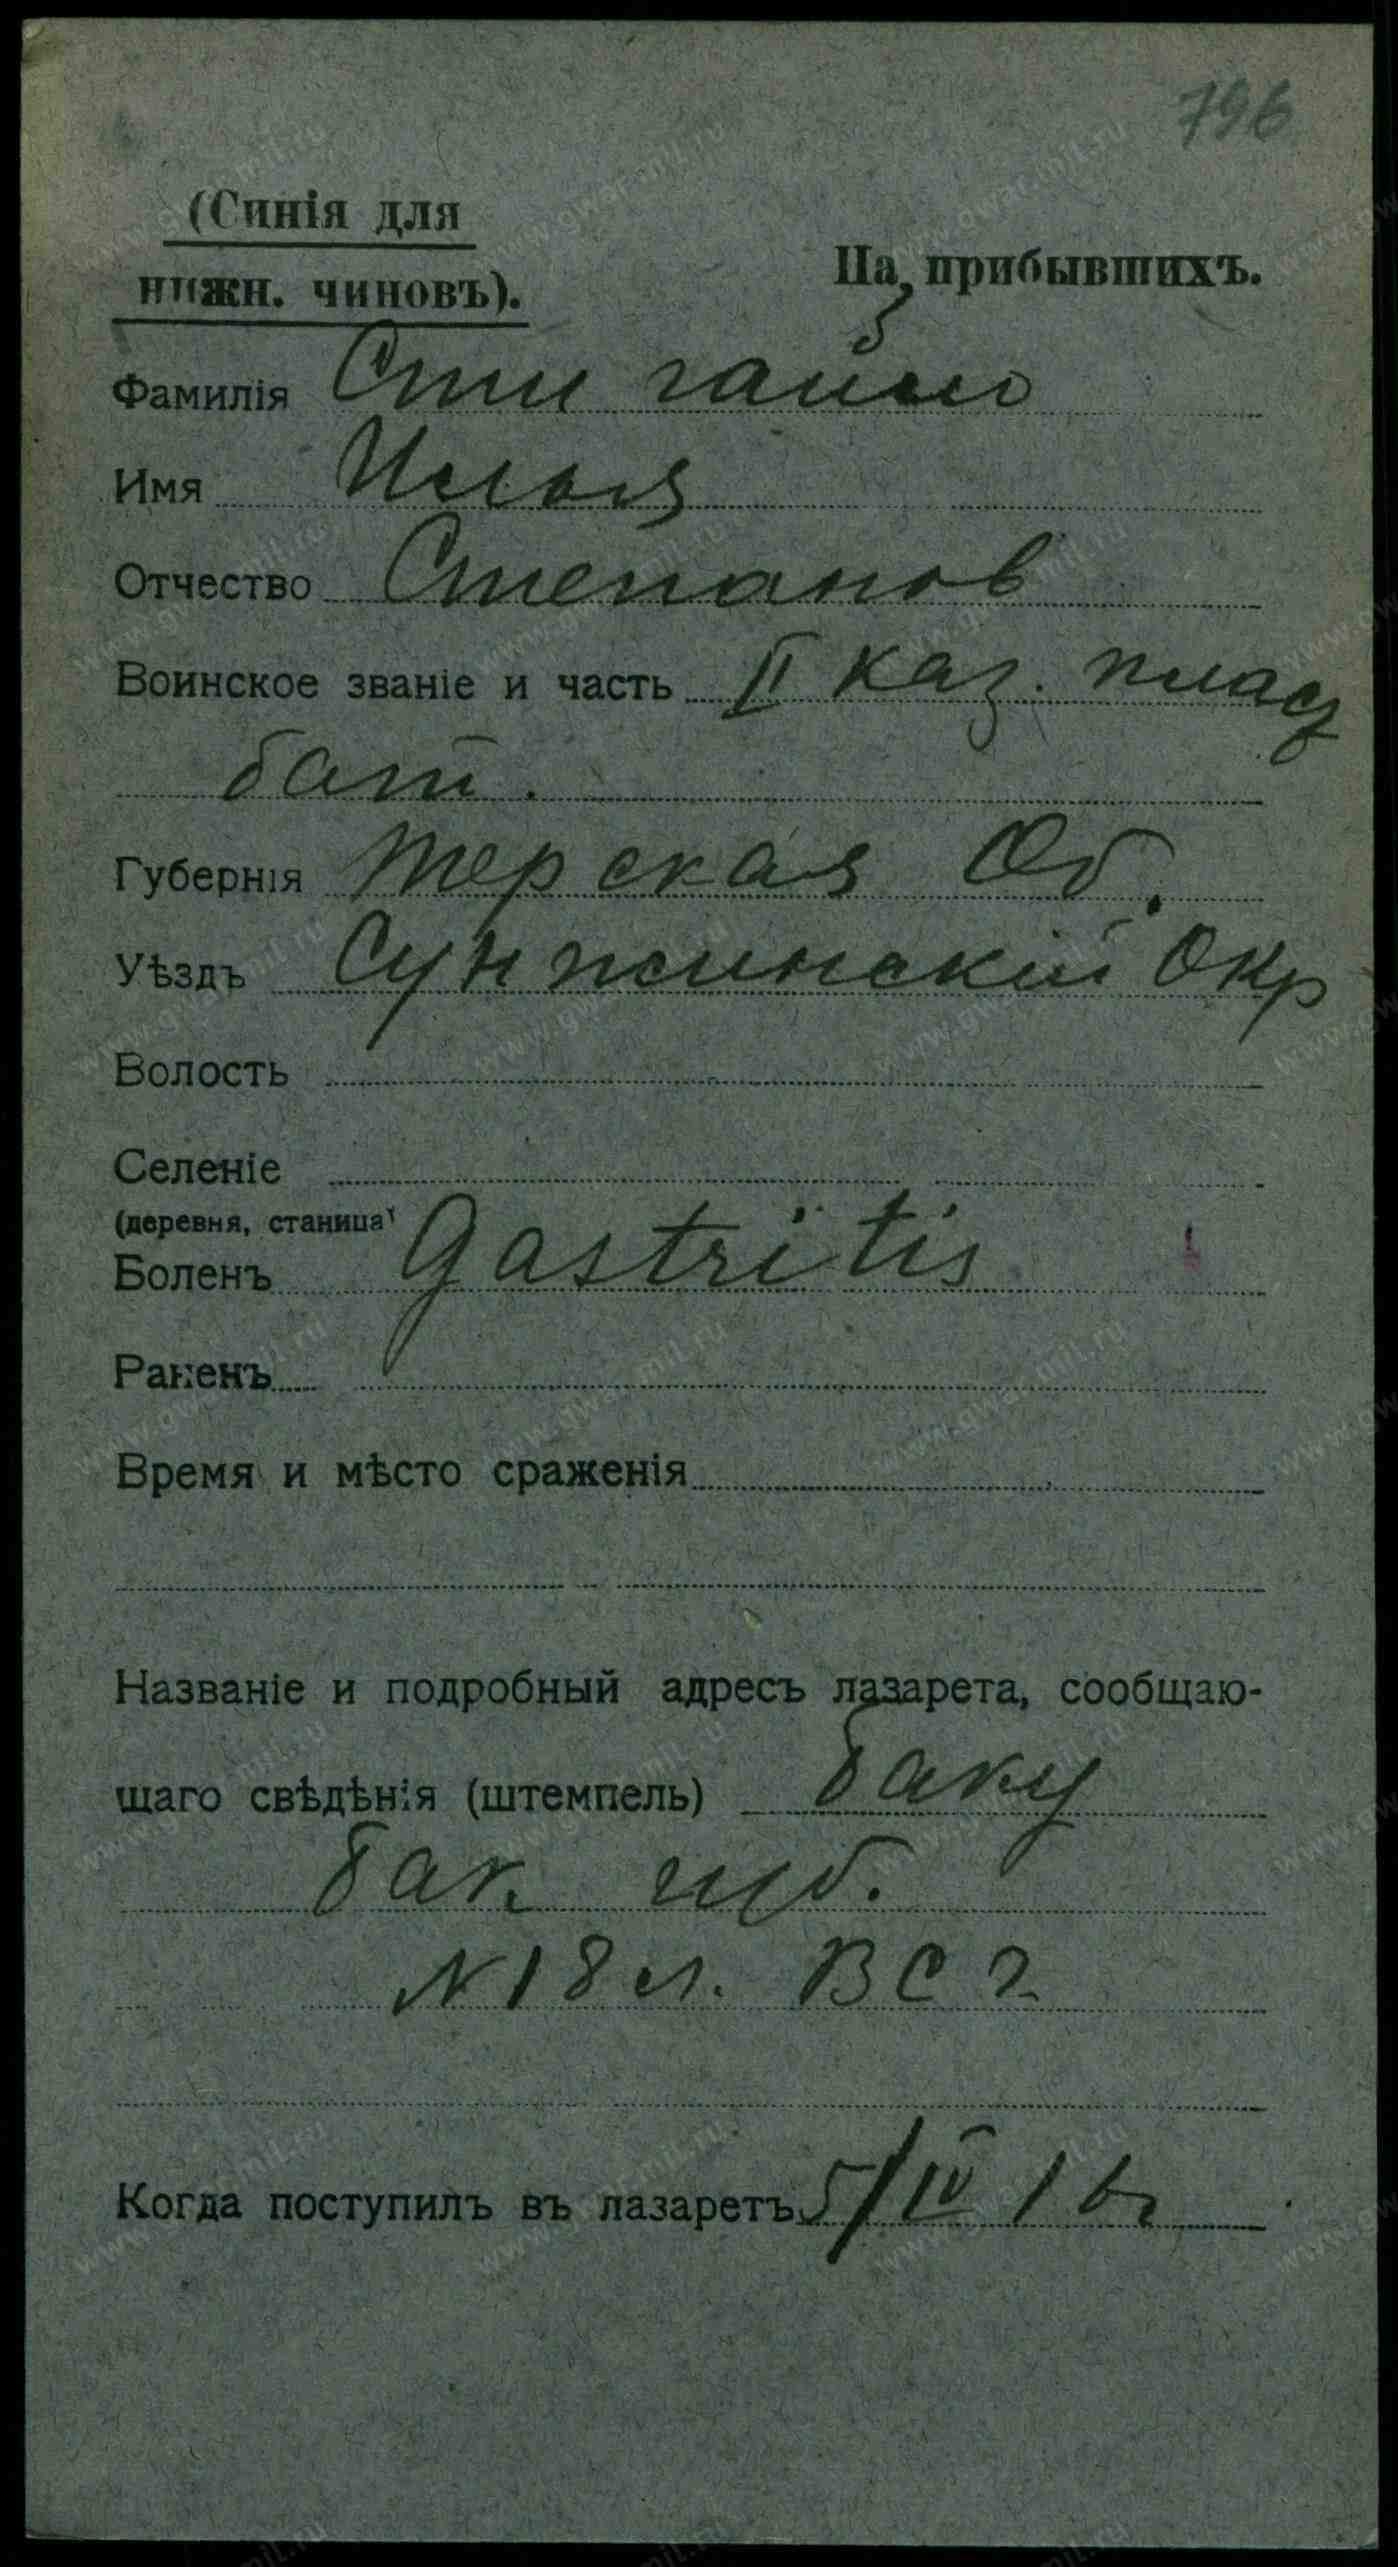 796
(Синія для
нижн. чиновъ).
На прибывшихъ.
Фамилія
Имя Илья
Отчество Степанов
Воинское званіе и часть II каз. пласт
бат.
Губернія Терская Об.
Уѣздъ Сунжинскій Окр
Волость
Селеніе
(деревня, станица)
Боленъ Gastritis
Раненъ
Время и мѣсто сраженія
Названіе и подробный адресъ лазарета, сообщаю-
щаго свѣдѣнія (штемпель) Баку
Бак. губ.
N 18 л. ВСГ
Когда поступилъ въ лазаретъ 5/IV 16г
www.gwar.mil.ru